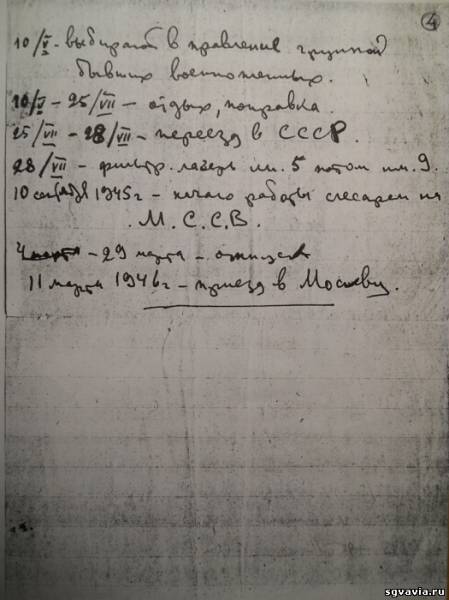 4
10/V - выбирают в правление группой
бывших военнопленных.
10/V - 25/VII - отдых, поправка.
25/VII - 28/VII - переезд в СССР.
28/VII - фильтр. лагерь пп. 5 потом пп. 9.
10 сентября 1945 г - начало работы слесарем на
М.С.С.В.
4 марта - 29 марта - отпуск
11 марта 1946 г - приезд в Москву.
sgvavia.ru